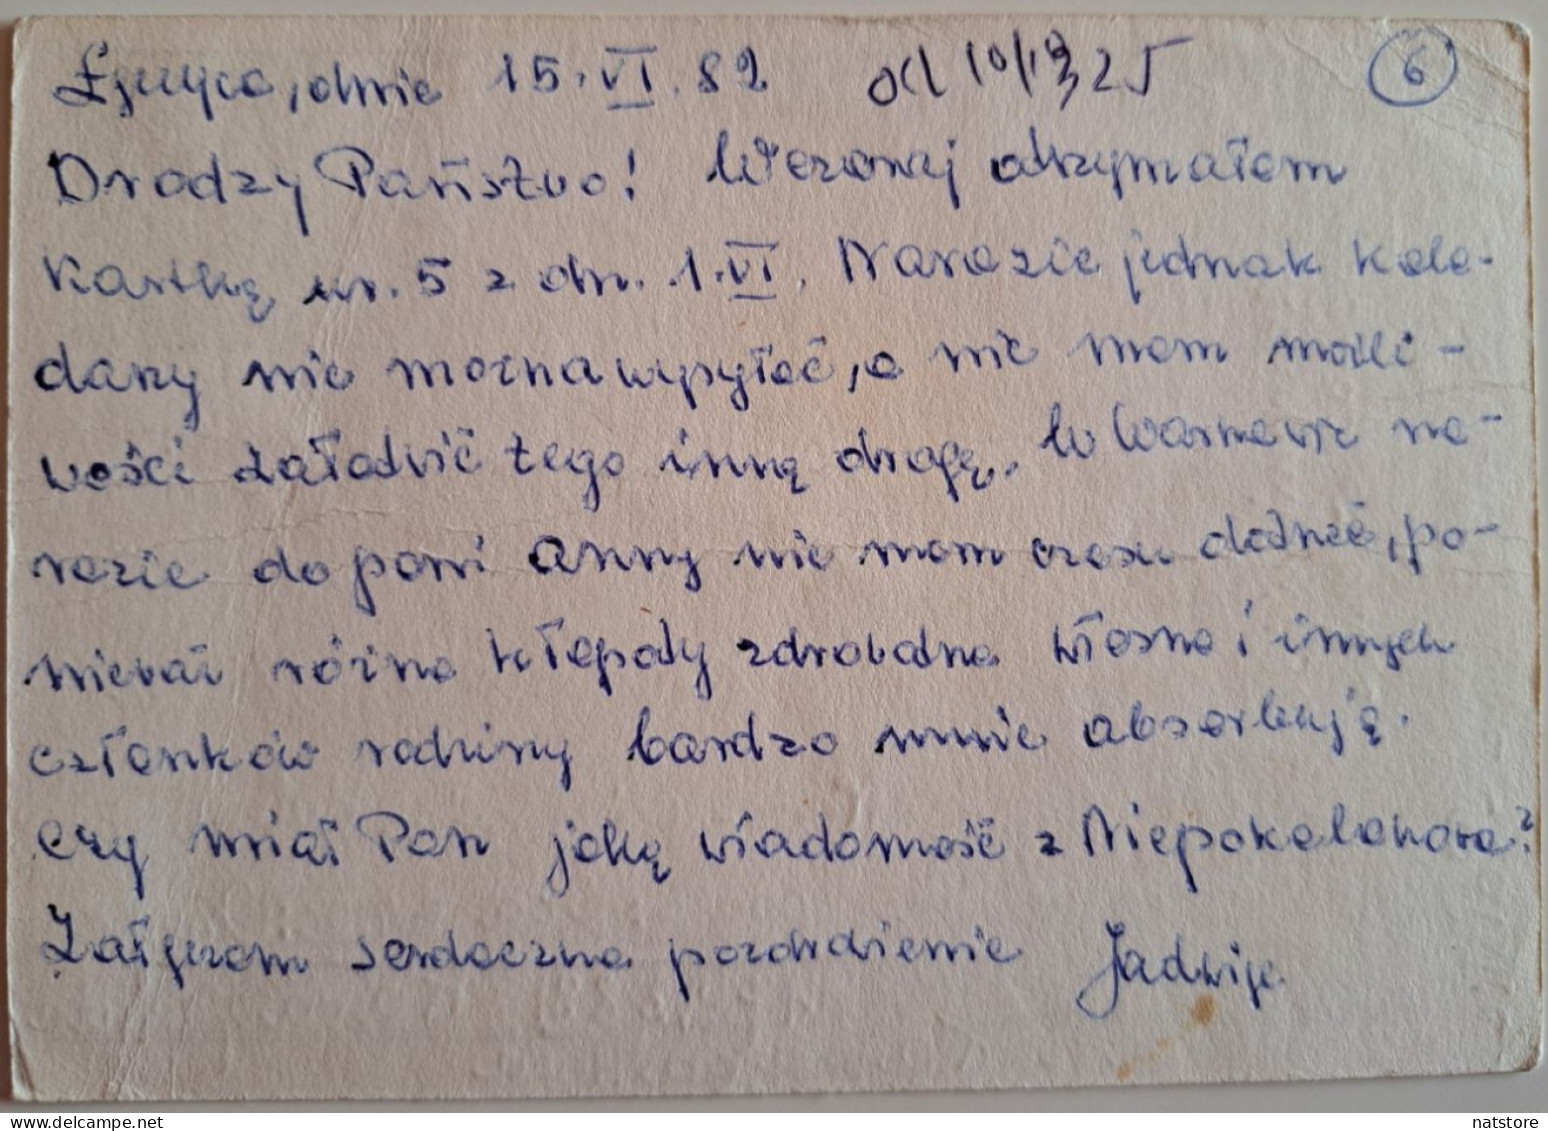 dnia 15.VI.82 od 10/19 325 6
Drodzy Państwo! Wczoraj otrzymałam
kartkę nr. 5 z dn. 1.VI. Narazie jednak kolo-
dary nie można wysyłać, a nie mam możli-
wości załatwić tego inną drogą. W Warszawie na-
razie do pani Anny nie mam czasu dotrzeć, po-
nieważ różne kłopoty zdrowotne własne i innych
członków rodziny bardzo mnie absorbują.
Czy miał Pan jaką wiadomość z Niepokalanowa?
Załączam serdeczne pozdrowienia Jadwiga
natstore